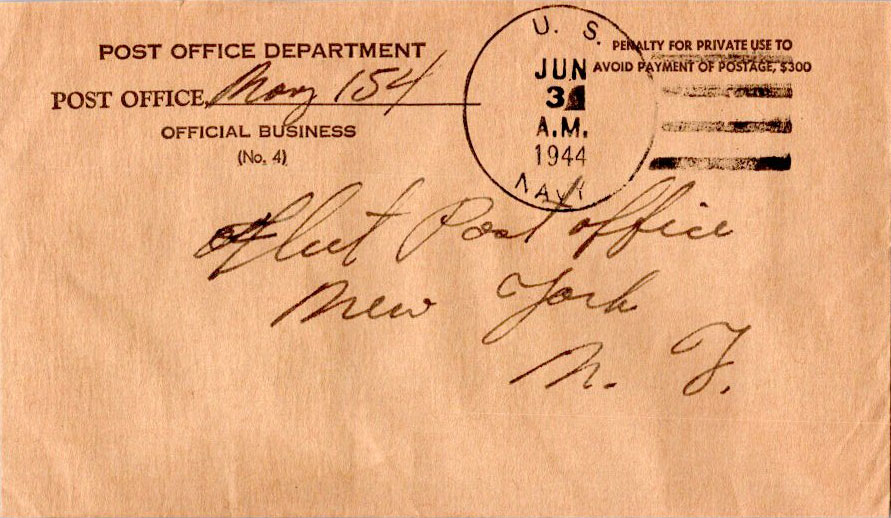 POST OFFICE DEPARTMENT
POST OFFICE, Navy 154
OFFICIAL BUSINESS
(No. 4)
U. S.
JUN
3
A.M.
1944
NAVY
PENALTY FOR PRIVATE USE TO
AVOID PAYMENT OF POSTAGE, $300
Fleet Post office
New York
N. Y.